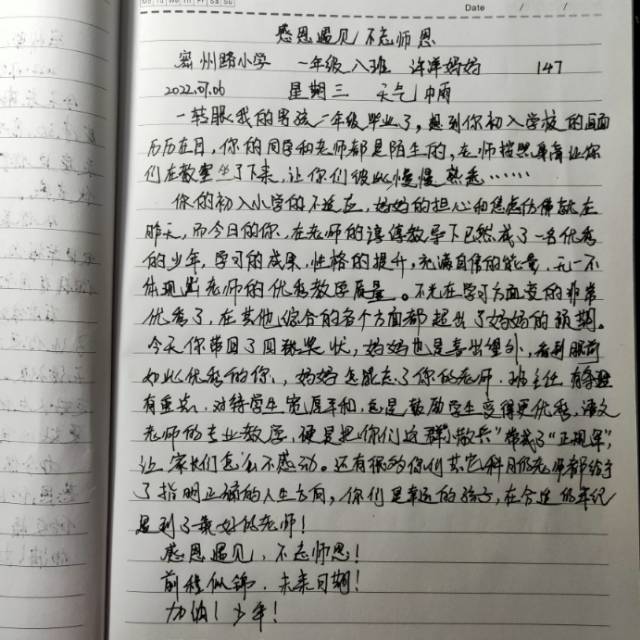 Mo Tu We Th Fr Sa Su
Date / /
感恩遇见 不忘师恩
密州路小学 一年级八班 洋洋妈妈 147
2022.07.06 星期三 天气 中雨
一转眼我的男孩一年级毕业了,想到你初入学校的画面
历历在目,你的同学和老师都是陌生的,老师按照身高让你
们在教室坐了下来,让你们彼此慢慢熟悉……
你的初入小学的不适应,妈妈的担心和焦虑仿佛就在
昨天,而今日的你,在老师的谆谆教导下已然成了一名优秀
的少年,学习的成果,性格的提升,充满自信的能量,无一不
体现出老师的优秀教学质量。不光在学习方面变的非常
优秀了,在其他综合的各个方面都超出了妈妈的预期。
今天你带回了回张奖状,妈妈也是喜出望外,看到眼前
如此优秀的你,妈妈怎能忘了你的老师,班主任
有重点,对待学生宽厚平和,总是鼓励学生变得更优秀,语文
老师的专业教学,硬是把你们这群“散兵”带成了“正规军”,
让家长们怎么不感动。还有很多你们其它科目的老师都给予
了指明正确的人生方向,你们是幸运的孩子,在合适的年纪
遇到了最好的老师!
感恩遇见,不忘师恩!
前程似锦,未来可期!
加油!少年!